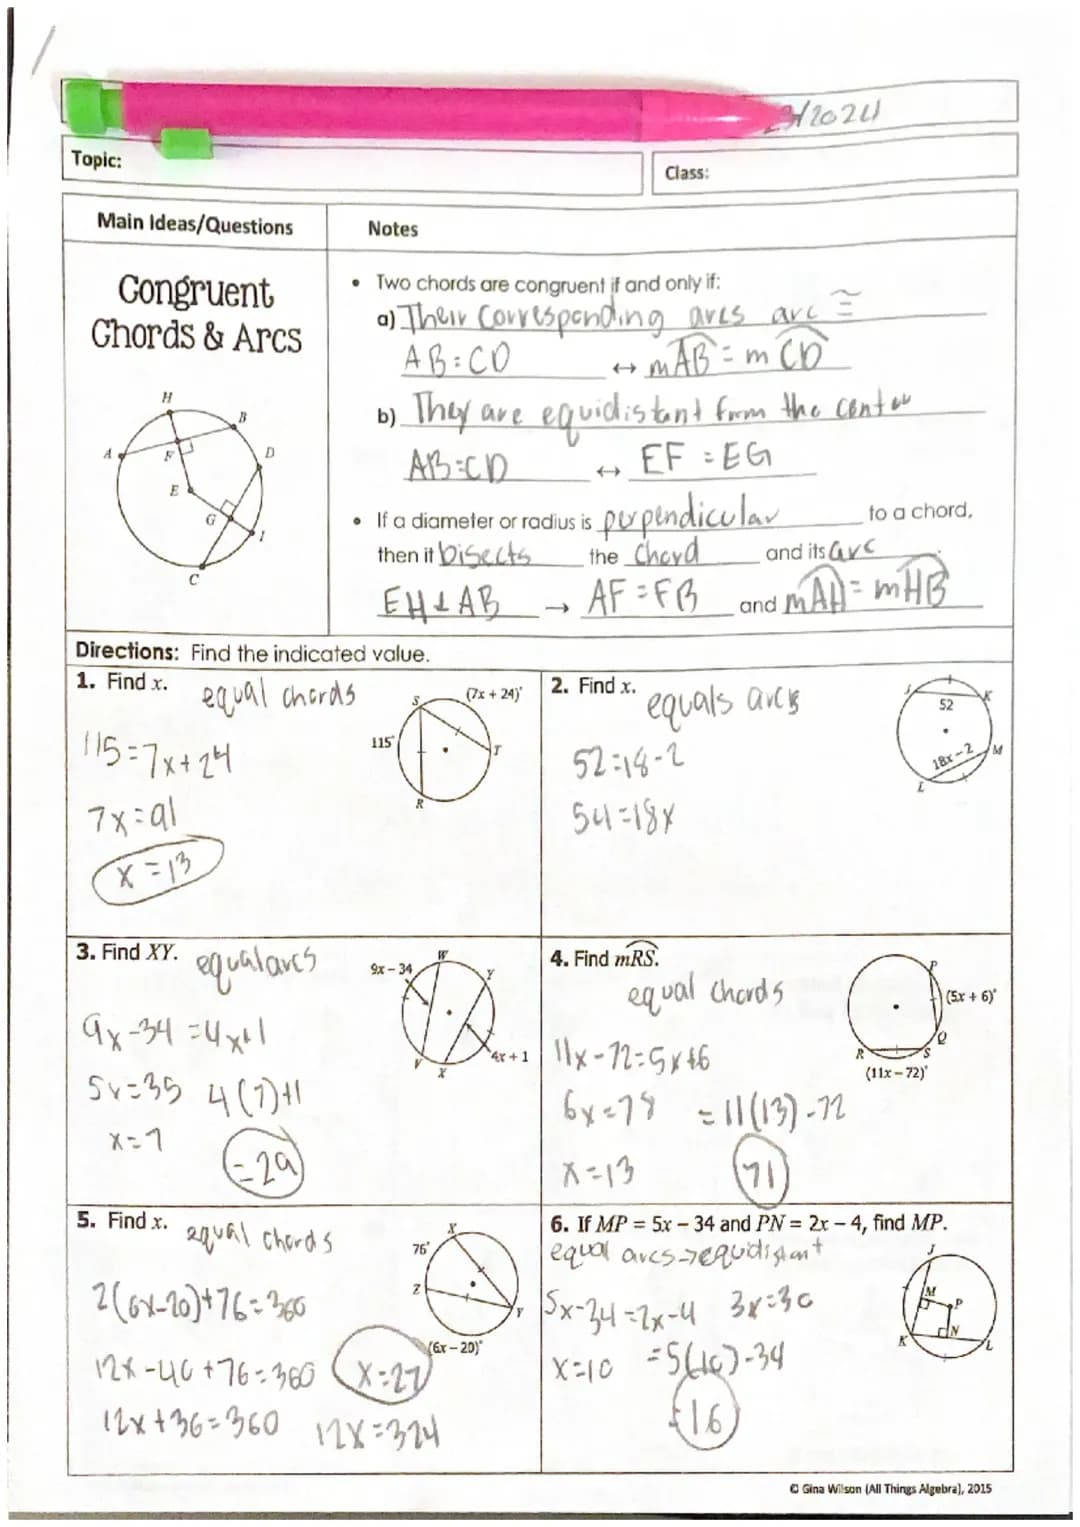 23/2024
Topic:
Class:
Main Ideas/Questions
Notes
Congruent
Chords & Arcs
H
B
A
F
D
E
G
I
C
• Two chords are congruent if and only if:
a) Their corresponding arcs are ≅
AB=CD ↔ mAB = mCD
b) They are equidistant from the center
AB=CD ↔ EF = EG
• If a diameter or radius is perpendicular to a chord,
then it bisects the chord and its arc
EH⊥AB → AF=FB and mAH=mHB
Directions: Find the indicated value.
1. Find x.
equal chords
S
(7x + 24)°
115°
T
R
115=7x+24
7x=91
x=13
2. Find x.
equals arcs
J
K
52
18x-2
M
L
52=18-2
54=18x
3. Find XY.
equal arcs
9x – 34
W
Y
V
X
4x + 1
9x-34=4x+1
5x=35 4(7)+1
x=7
=29
4. Find mRS.
equal chords
P
(5x + 6)°
Q
R
S
(11x – 72)°
11x-72=5x+6
6x=78 =11(13)-72
x=13
71
5. Find x.
equal chords
X
76°
Z
Y
(6x – 20)°
2(6x-20)+76=360
12x-40+76=360
x=27
12x+36=360 12x=324
6. If MP = 5x – 34 and PN = 2x – 4, find MP.
equal arcs→equidistant
J
M
P
K
N
L
5x-34=2x-4 3x=30
x=10 =5(10)-34
=16
© Gina Wilson (All Things Algebra), 2015